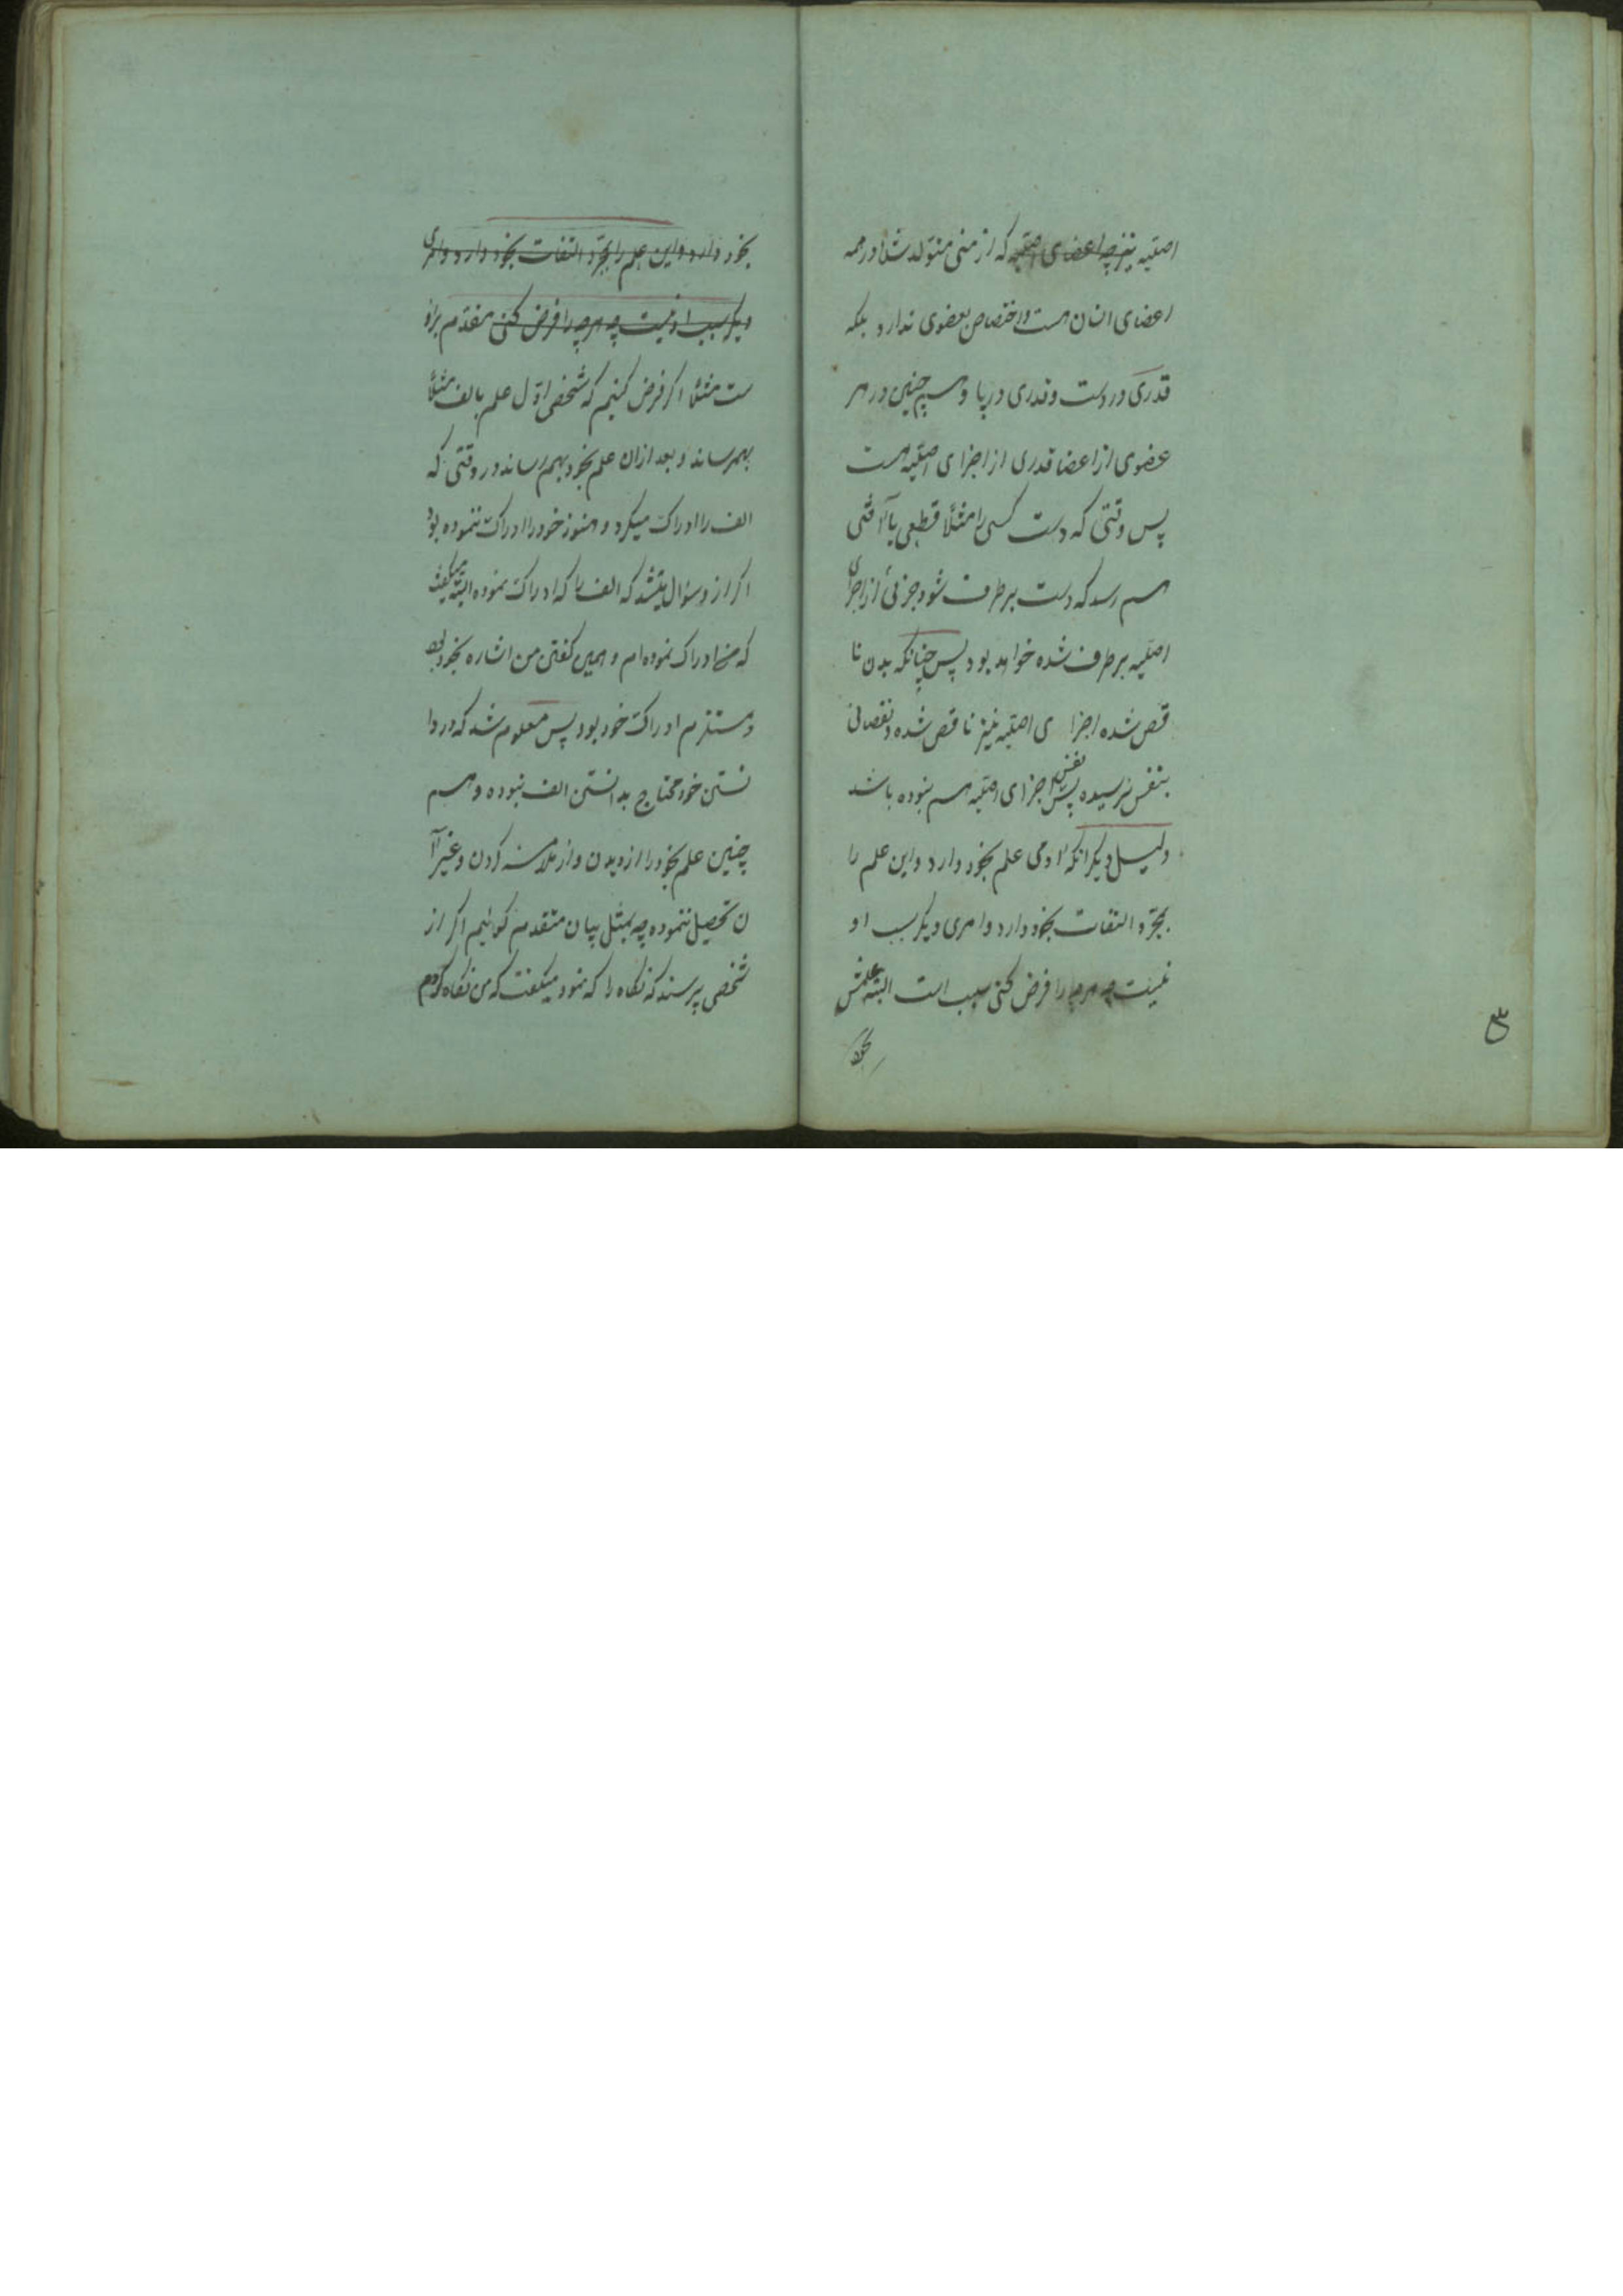 اصلیه نیز چه اعضای اصلیه که از منی متولد شد در همه
اعضای انسان هست و اختصاص بعضوی ندارد بلکه
قدری در دست و قدری در پا و همچنین در هر
عضوی از اعضا قدری از اجزای اصلیه هست
پس وقتی که دست کسی را مثلا قطعی یا آفتی
هم رسد که دست برطرف شود جزئی از اجزای
اصلیه برطرف شده خواهد بود پس چنانکه بدن نا
قص شده اجزا ی اصلیه نیز ناقص شده و نقصانی
بنفس نرسیده پس نفس اجزای اصلیه هم نبوده باشد
دلیل دیگر انکه ادمی علم بخود دارد و این علم را
بمجرد التفات بخود دارد و امری دیگر سبب او
نیست چه هرچه را فرض کنی سبب است البته علمش
بخود
۳
بخود دارد و این علم را بمجرد التفات بخود دارد و امری
دیگر سبب او نیست چه هرچه را فرض کنی مقدم براو
ست مثلا اگر فرض کنیم که شخصی اول علم بالف مثلا
بهمرساند و بعد ازان علم بخود بهم رساند در وقتی که
الف را ادراک میکرد و هنوز خود را ادراک ننموده بود
اگر از و سؤال میشد که الف را که ادراک نموده البته میگفت
که من ادراک نموده ام و همین گفتن من اشاره بخود
و مستلزم ادراک خود بود پس معلوم شد که در دا
نستن خود محتاج بدانستن الف نبوده و هم
چنین علم بخود را از دیدن و از ملامسه کردن و غیر آ
ن تحصیل ننموده چه بمثل بیان متقدم گوئیم اگر از
شخصی پرسند که نگاه را که نمود میگفت که من نگاه کردم